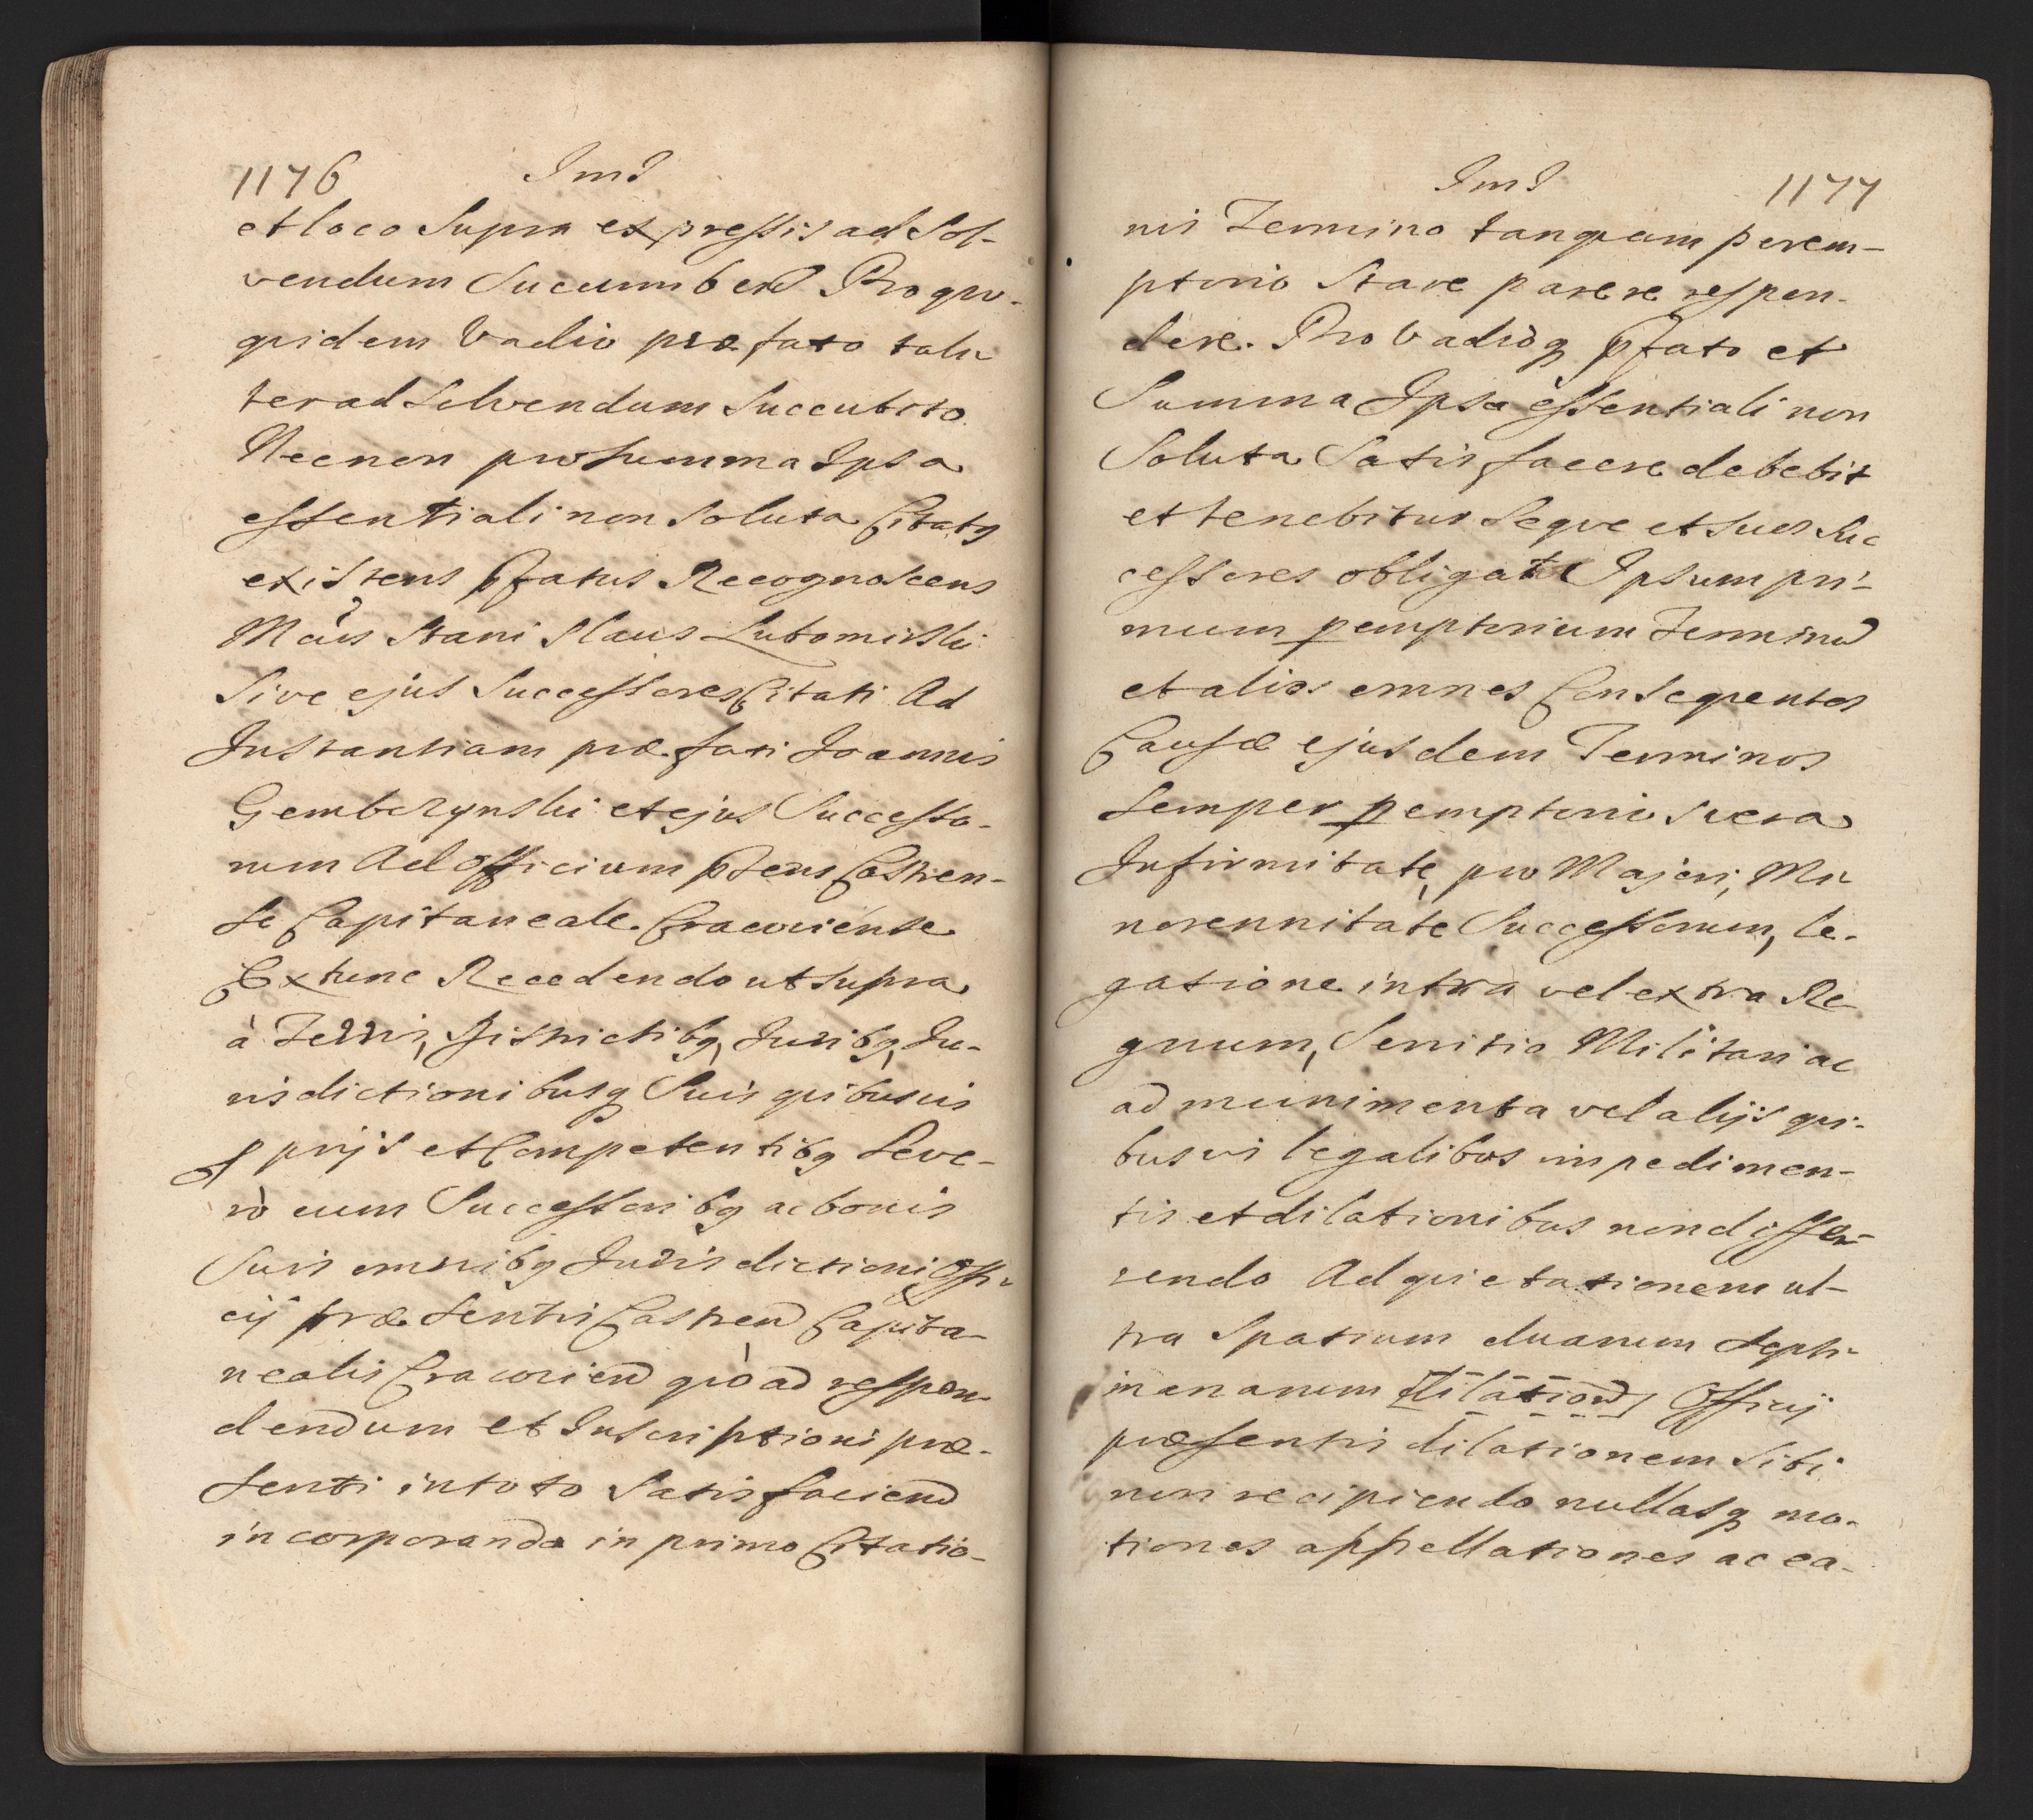 1176 Imd
et loco Supra expressis ad Sol-
vendum Succumberet Pro quo-
quidem Vadio præfato tali
ter ad Solvendum Succubito
Necnon pro Summa Ipsa
essentiali non Soluta Citatq
existens Pfatus Recognoscens
Mcus Stanislaus Lubomirski
Sive ejus Successores Citati Ad
Instantiam præfati Joannis
Gembczynski et ejus Successo-
rum Ad Officium pdens Castren-
se Capitaneale Cracoviense
Extunc Recedendo ut Supra
à Terris, Districtibq, Juribq, Ju-
risdictionibusq Suis quibusvis
pprijs et Competentibq Seve-
rò cum Successoribq ac bonis
Suis omnibq Jurisdictioni Offi-
cij præsentis Castren Capita-
nealis Cracovien qò ad respon-
dendum et Inscriptioni præ-
senti in toto Satisfaciend
incorporando in primo Citatio-
Imd 1177
nis Termino tanquam perem-
ptorio Stare parere respon-
dere. Pro Vadiòq pfato et
Summa Ipsa essentiali non
Soluta Satisfacere debebit
et tenebitur Seque et Suos Suc
cessores obligat Ipsum pri-
mum pemptorium Terminu
et alios omnes Consequentes
Causæ ejusdem Terminos
Semper pemptorios vera
Infirmitate, pro Majori, Mi-
norennitate Successorum, le-
gatione intra vel extra Re-
gnum, Servitio Militari ac
ad munimenta vel alijs qui-
busvis legalibus impedimen-
tis et dilationibus non diffe-
rendo Ad quietationem ul-
tra Spatium duarum Septi-
manarum dilation Officij
præsentis dilationem Sibi
non recipiendo nullasq mo-
tiones appellationes ac ea-